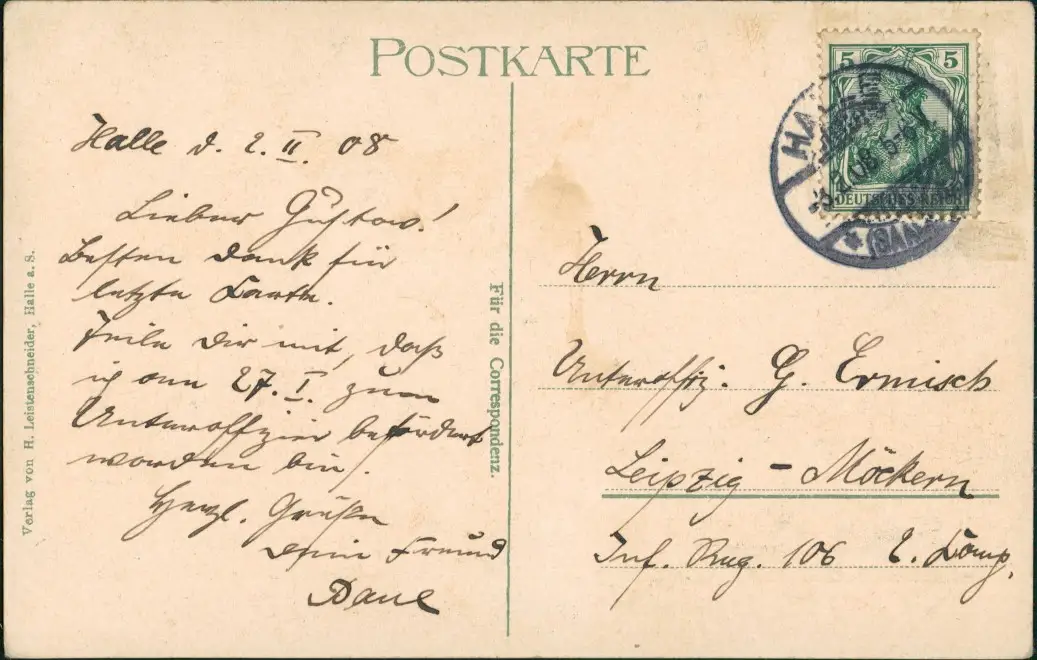 POSTKARTE
Halle d. 2. II. 08
Lieber Gustav!
Besten Dank für
letzte Karte.
Teile Dir mit, daß
ich am 27. I. zum
Unteroffizier befördert
worden bin.
Herzl. Grüße
Dein Freund
Paul
Verlag von H. Leistenschneider, Halle a. S.
Für die Correspondenz.
5 5
DEUTSCHES REICH
HALLE
2.08
(SAALE)
Herrn
Unteroffiz. G. Ermisch
Leipzig - Möckern
Inf. Reg. 106 2. Komp.